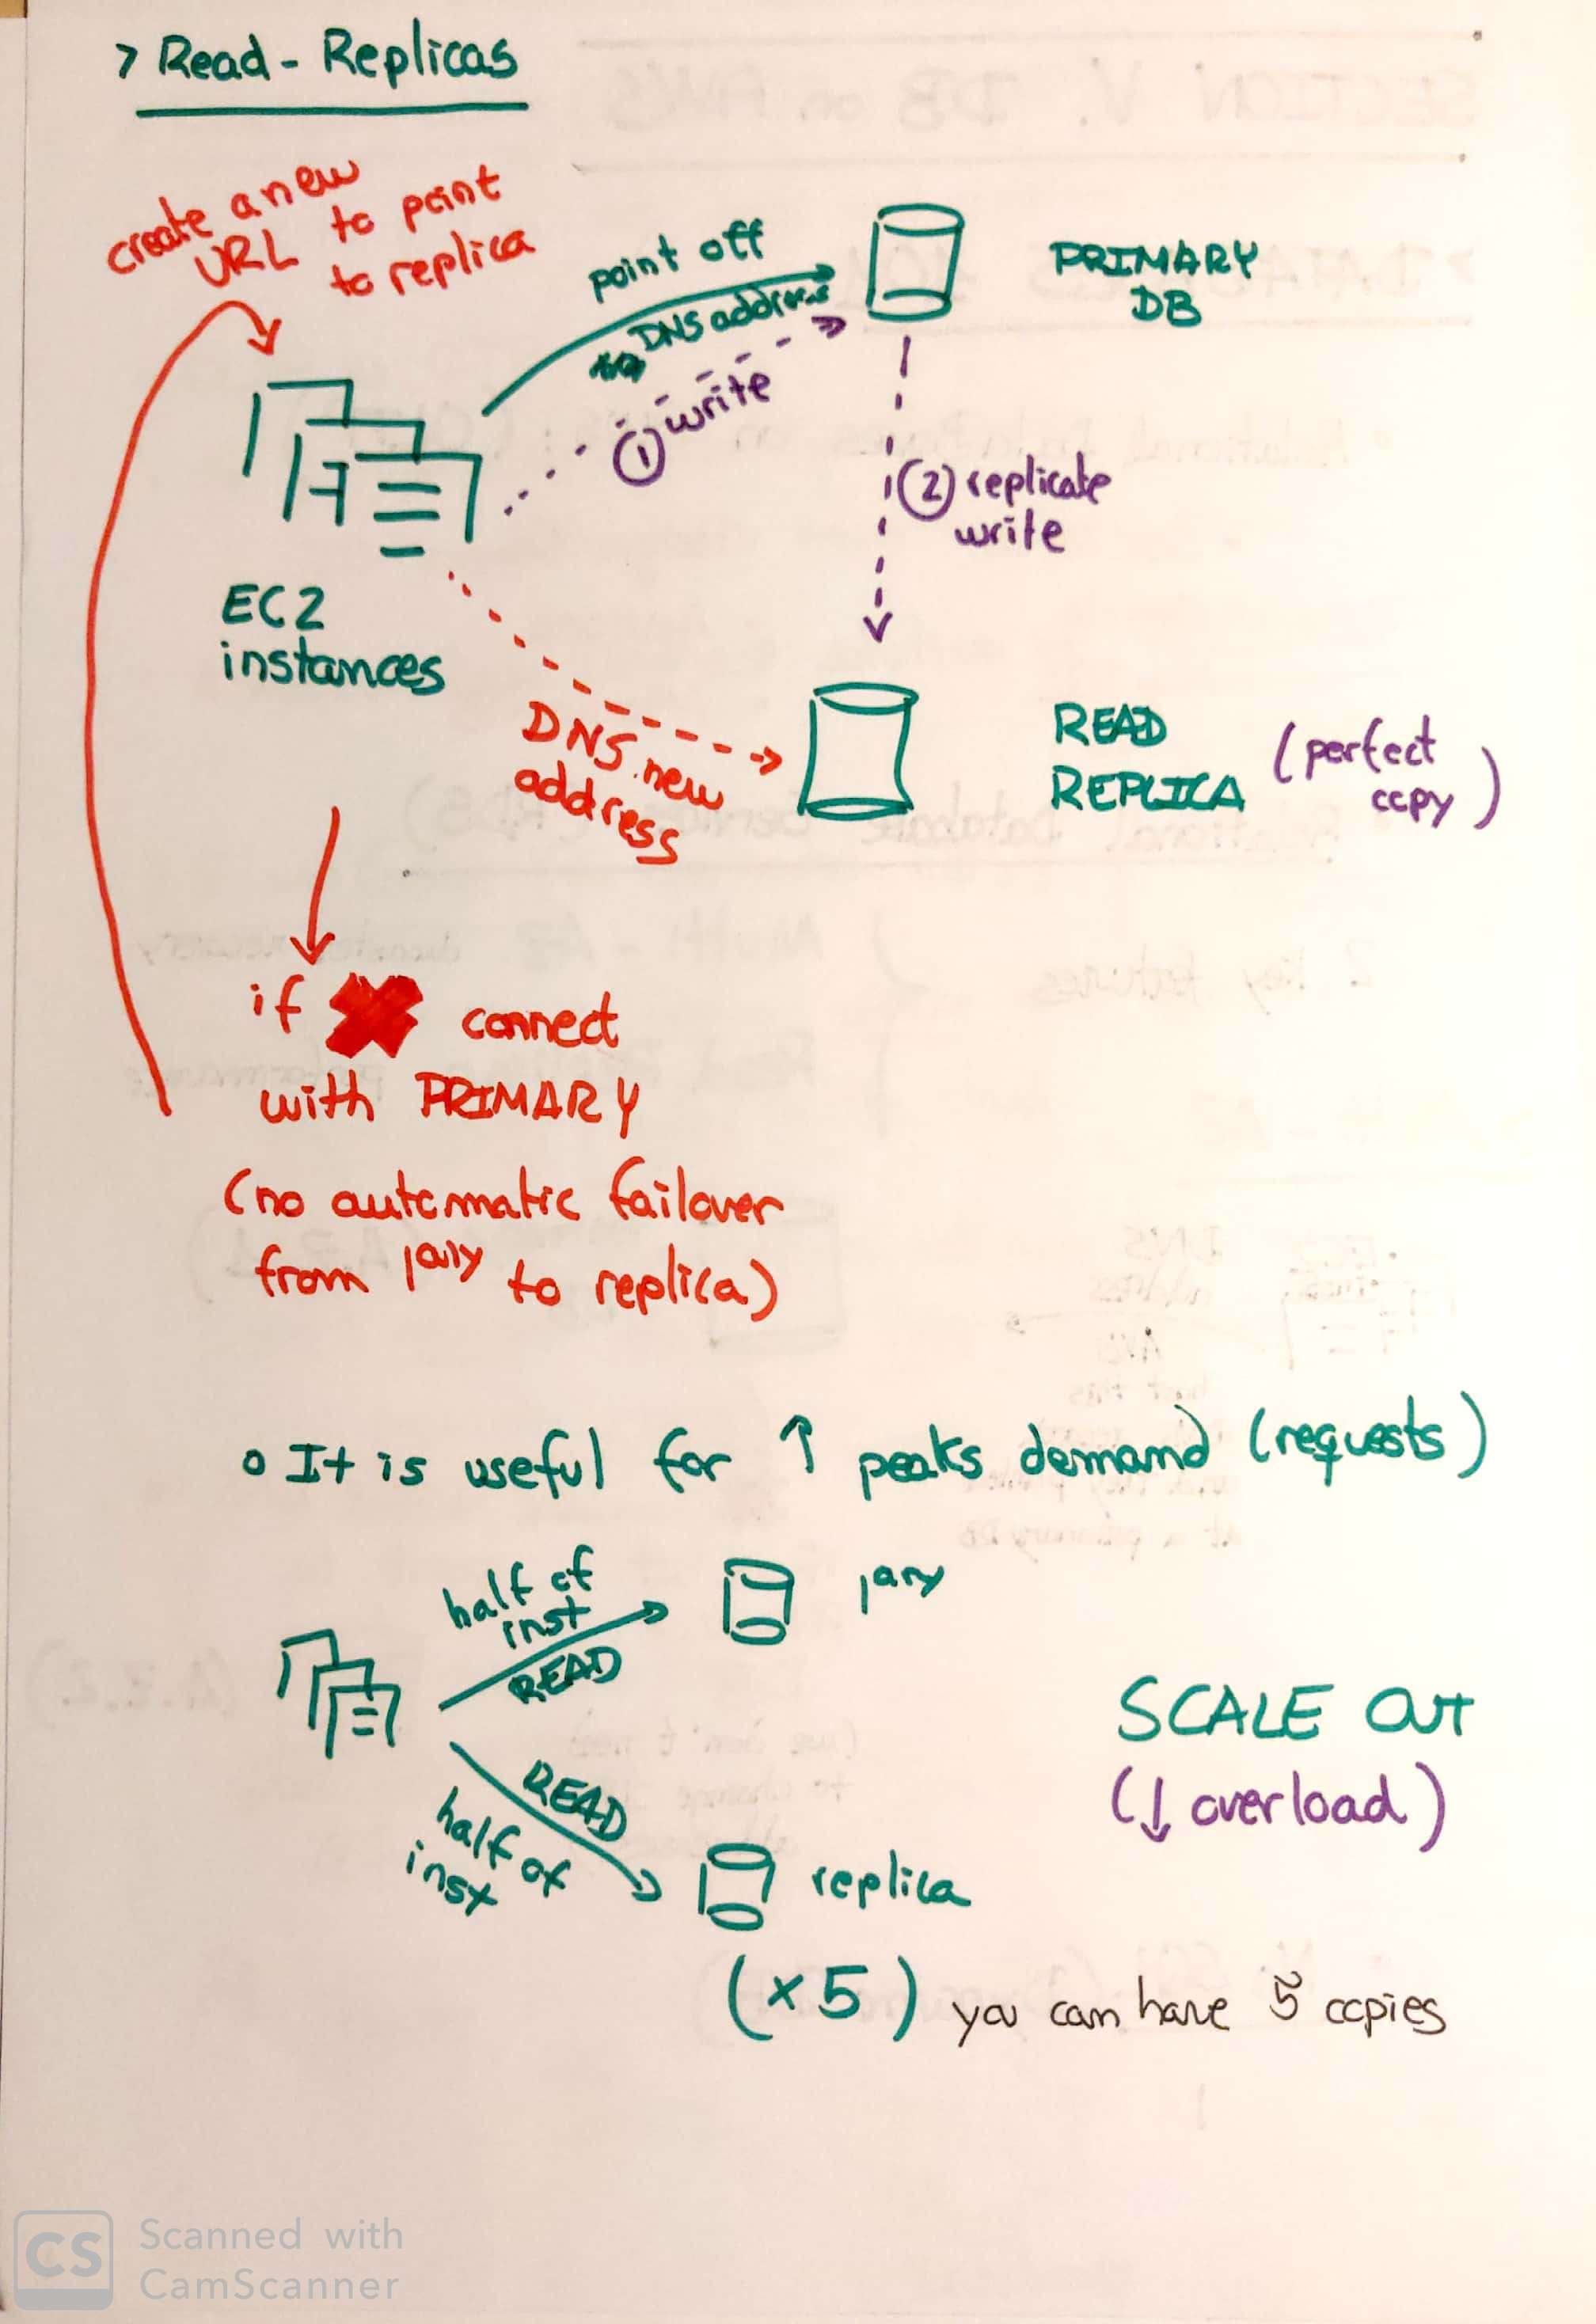 > Read - Replicas
create a new
URL to point
to replica
point off
DNS address
① write
PRIMARY
DB
② replicate
write
EC2
instances
DNS new
address
READ
REPLICA
(perfect
copy)
if ✖ connect
with PRIMARY
(no automatic failover
from 1ary to replica)
o It is useful for ↑ peaks demand (requests)
half of
inst
READ
1ary
READ
half of
inst
replica
SCALE OUT
(↓ overload)
(x5) you can have 5 copies
CS
Scanned with
CamScanner